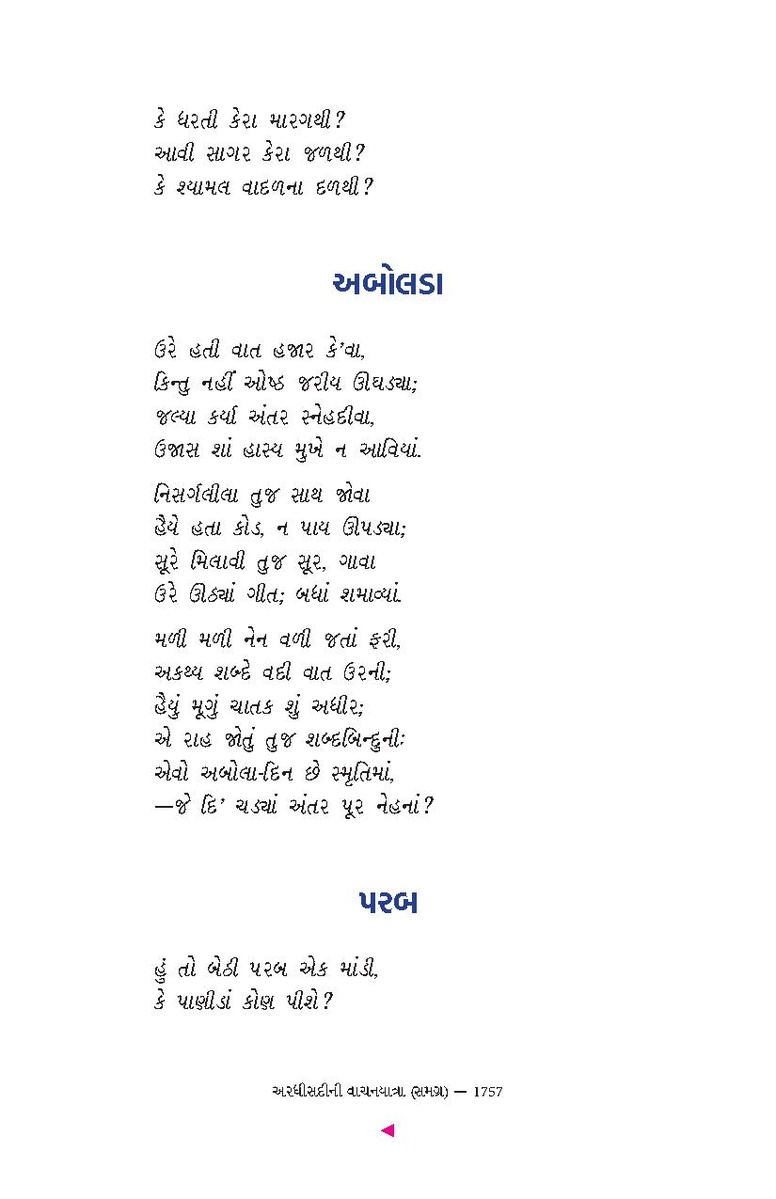 કે ધરતી કેરા મારગથી?
આવી સાગર કેરા જળથી?
કે શ્યામલ વાદળના દળથી?
અબોલડા
ઉરે હતી વાત હજાર કે’વા,
કિન્તુ નહીં ઓષ્ઠ જરીય ઊઘડ્યા;
જલ્યા કર્યા અંતર સ્નેહદીવા,
ઉજાસ શાં હાસ્ય મુખે ન આવિયાં.
નિસર્ગલીલા તુજ સાથ જોવા
હૈયે હતા કોડ, ન પાય ઊપડ્યા;
સૂરે મિલાવી તુજ સૂર, ગાવા
ઉરે ઊઠ્યાં ગીત; બધાં શમાવ્યાં.
મળી મળી નેન વળી જતાં ફરી,
અકથ્ય શબ્દે વદી વાત ઉરની;
હૈયું મૂગું ચાતક શું અધીર;
એ રાહ જોતું તુજ શબ્દબિન્દુનીઃ
એવો અબોલા-દિન છે સ્મૃતિમાં,
—જે દિ’ ચડ્યાં અંતર પૂર નેહનાં?
પરબ
હું તો બેઠી પરબ એક માંડી,
કે પાણીડાં કોણ પીશે?
અરધીસદીની વાચનયાત્રા (સમગ્ર) — 1757